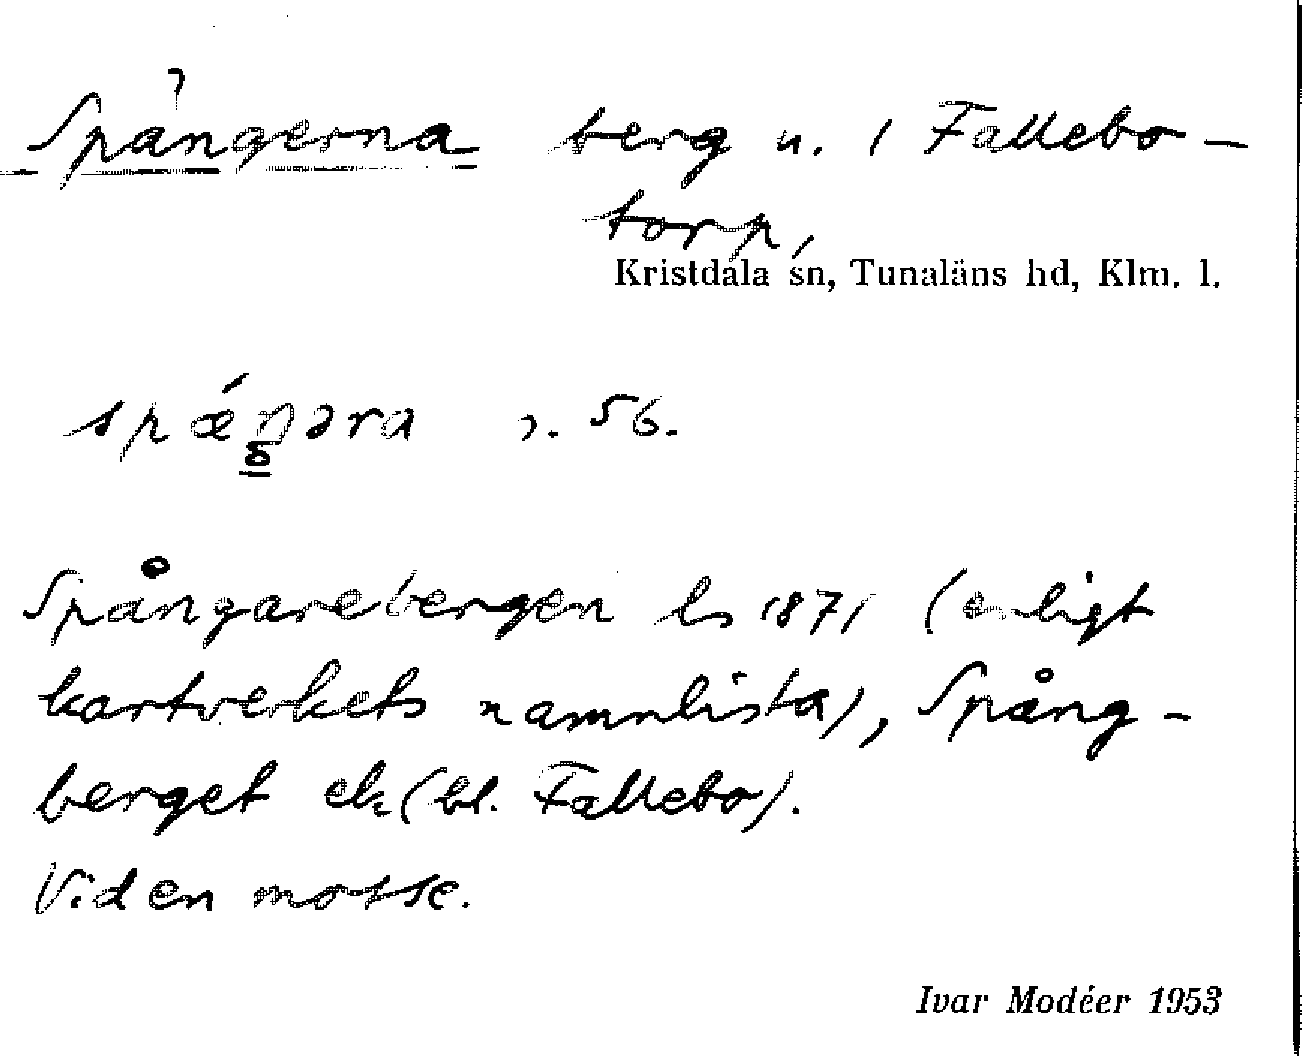 Spångerna berg n. / Fallebo-
torp,
Kristdala sn, Tunaläns hd, Klm. l.
spǽŋəra 2. 56.
Spångarebergen ls 1871 (enligt
kartverkets namnlista), Spång-
berget ek (bl. Fallebo).
Vid en mosse.
Ivar Modéer 1953